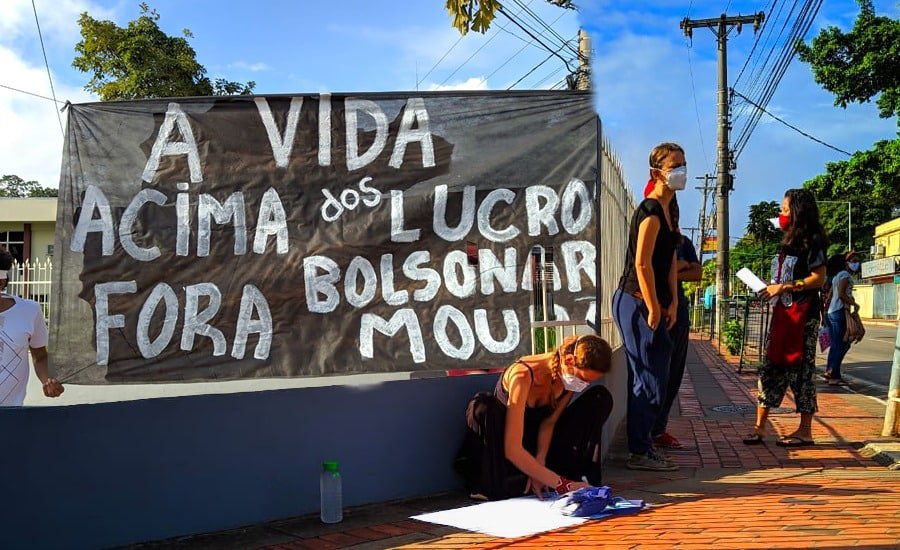 A VIDA
ACIMA dos LUCRO
FORA BOLSONAR
MOU